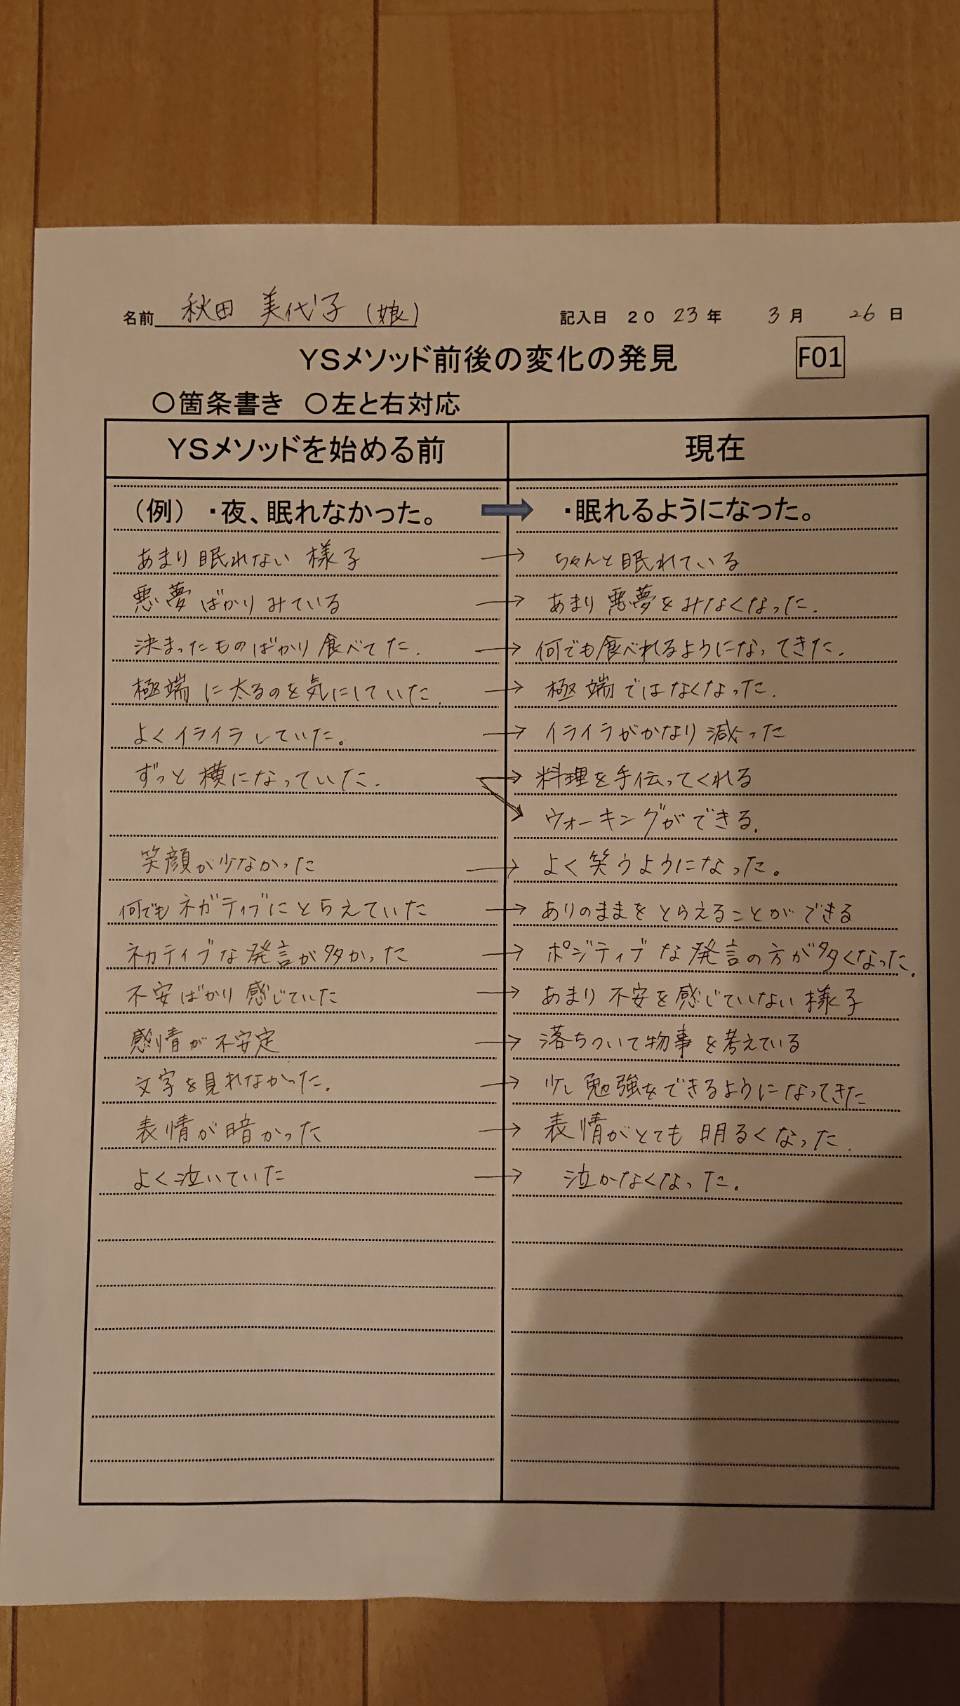 名前 秋田 美代子(娘) 記入日 2023年 3月 26日
YSメソッド前後の変化の発見 F01
○箇条書き ○左と右対応
YSメソッドを始める前 現在
(例) ・夜、眠れなかった。 ・眠れるようになった。
あまり眠れない様子 → ちゃんと眠れている
悪夢ばかりみている → あまり悪夢をみなくなった.
決まったものばかり食べてた. → 何でも食べれるようになってきた.
極端に太るのを気にしていた. → 極端ではなくなった.
よくイライラしていた。 → イライラがかなり減った
ずっと横になっていた. → 料理を手伝ってくれる
ウォーキングができる.
笑顔が少なかった → よく笑うようになった。
何でもネガティブにとらえていた → ありのままをとらえることができる
ネカティブな発言が多かった → ポジティブな発言の方が多くなった.
不安ばかり感じていた → あまり不安を感じていない様子
感情が不安定 → 落ちついて物事を考えている
文字を見れなかった. → 少し勉強をできるようになってきた
表情が暗かった → 表情がとても明るくなった.
よく泣いていた → 泣かなくなった.